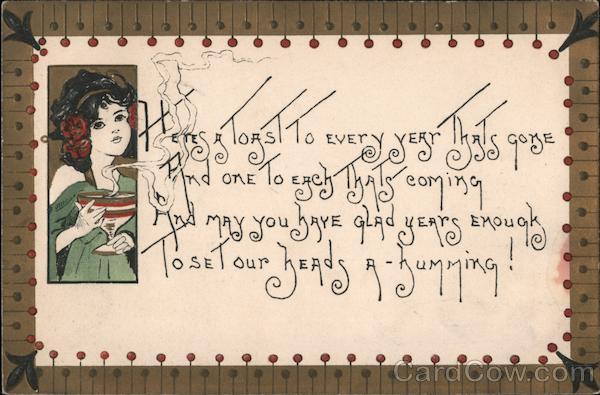 Here's a Toast To every year That's gone
And one To each That's coming
And may you have glad years enough
To set our heads a-humming!
CardCow.com